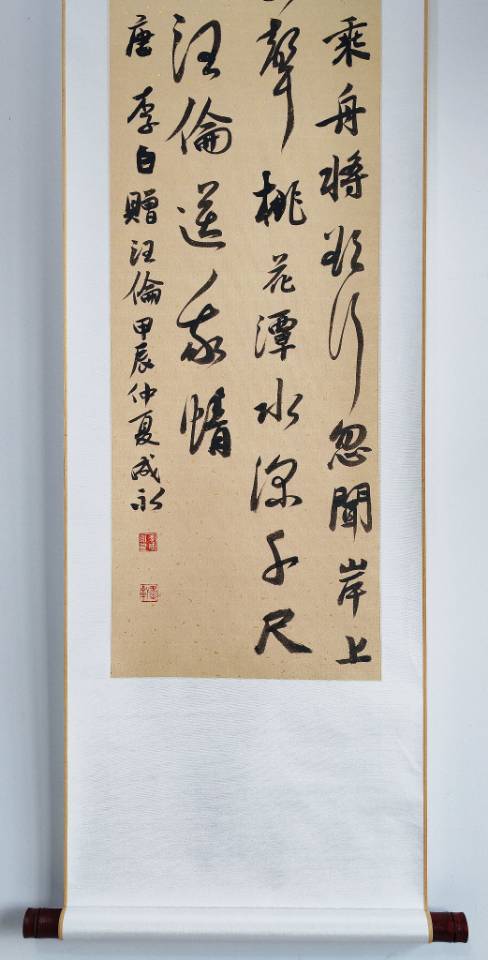 乘舟將欲行忽聞岸上
聲桃花潭水深千尺
汪倫送我情
唐李白贈汪倫甲辰仲夏成永